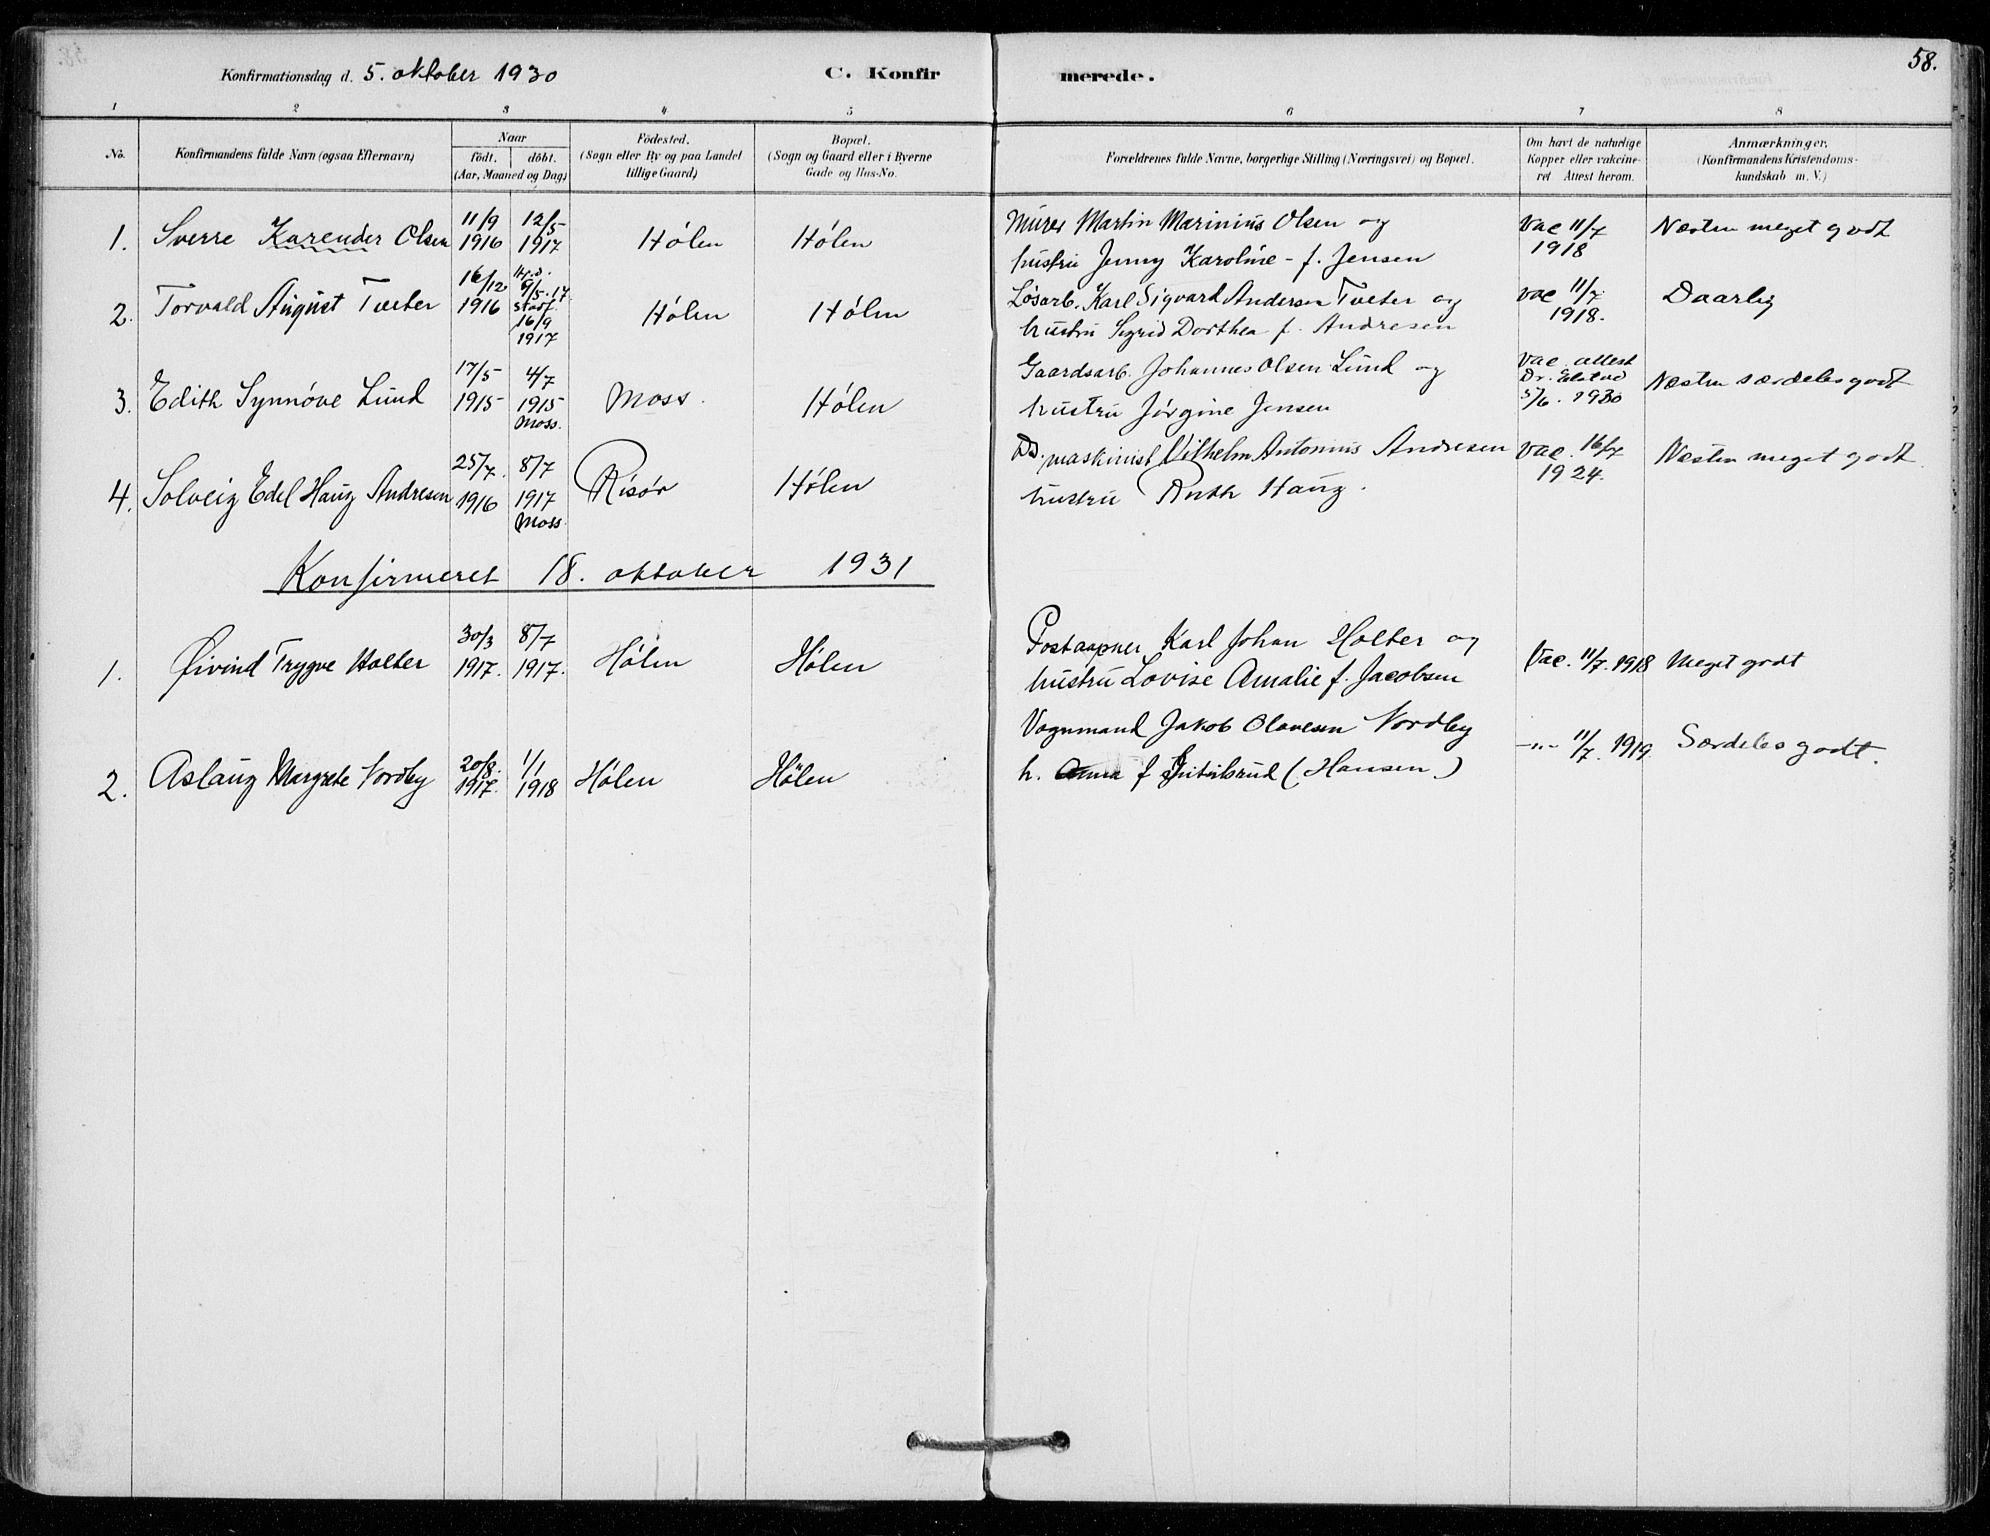 58.
Konfirmationsdag d. 5. oktober 1930
C. Konfirmerede.
1 2 3 4 5 6 7 8
No.
Konfirmandens fulde Navn (ogsaa Efternavn)
Naar
födt. döbt.
(Aar, Maaned og Dag)
Födested.
(Sogn eller By og paa Landet
tillige Gaard)
Bopæl.
(Sogn og Gaard eller i Byerne
Gade og Hus-No.
Forældrenes fulde Navne, borgerlige Stilling (Næringsvei) og Bopæl.
Om havt de naturlige
Kopper eller vakcine-
ret Attest herom.
Anmærkninger.
(Konfirmandens Kristendoms-
kundskab m. V.)
1. Sverre Karender Olsen 11/9 1916 12/5 1917 Hølen Hølen
Murer Martin Marinius Olsen og
hustru Jenny Karoline - f. Jensen
Vac 11/7 1918
Næsten meget godt
2. Torvald August Tveter 16/12 1916 Hj.d. 9/5.17 stadf. 16/9 1917 Hølen Hølen
Løsarb. Karl Sigvart Andersen Tveter og
hustru Sigrid Dorthea f. Andresen
Vac 11/7 1918.
Daarlig
3. Edith Synnøve Lund 17/5 1915 4/7 1915 Moss. Moss. Hølen
Gaardsarb. Johannes Olsen Lund og
hustru Jørgine Jensen
Vac. attest
Dr.
5/6. 1930
Næsten særdeles godt
4. Solveig Edel Haug Andresen 25/7. 1916 8/7 1917 Moss Risør Hølen
maskinist Vilhelm Antonius Andresen
hustru Ruth Haug.
Vac. 16/7 1924.
Næsten meget godt
Konfirmeret 18. oktober 1931
1. Øivind Trygve Holter 30/3 1917. 8/7 1917. Hølen Hølen
Postaapner Karl Johan Holter og
hustru Lovise Amalie f. Jacobsen
Vac. 11/7. 1918
Meget godt
2. Aslaug Margrete Nordby 20/8. 1917. 1/1 1918 Hølen Hølen
Vognmand Jakob Olavesen Nordby
h. Anna f (Hansen)
-"- 11/7. 1919
Særdeles godt.